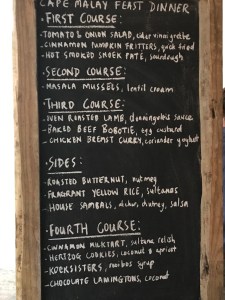 CAPE MALAY FEAST DINNER
FIRST COURSE:
TOMATO & ONION SALAD, cider vinaigrette
CINNAMON PUMPKIN FRITTERS, quick fried
HOT SMOKED SNOEK PATÉ, sourdough
SECOND COURSE:
MASALA MUSSELS, lentil cream
THIRD COURSE:
OVEN ROASTED LAMB, sauce
BAKED BEEF BOBOTIE, egg custard
CHICKEN BREAST CURRY, coriander yoghurt
SIDES:
ROASTED BUTTERNUT, nutmeg
FRAGRANT YELLOW RICE, sultanas
HOUSE SAMBALS, achar, chutney, salsa
FOURTH COURSE:
CINNAMON MILKTART, sultana relish
HERTZOG COOKIES, coconut & apricot
KOEKSISTERS, rooibos syrup
CHOCOLATE LAMINGTONS, coconut